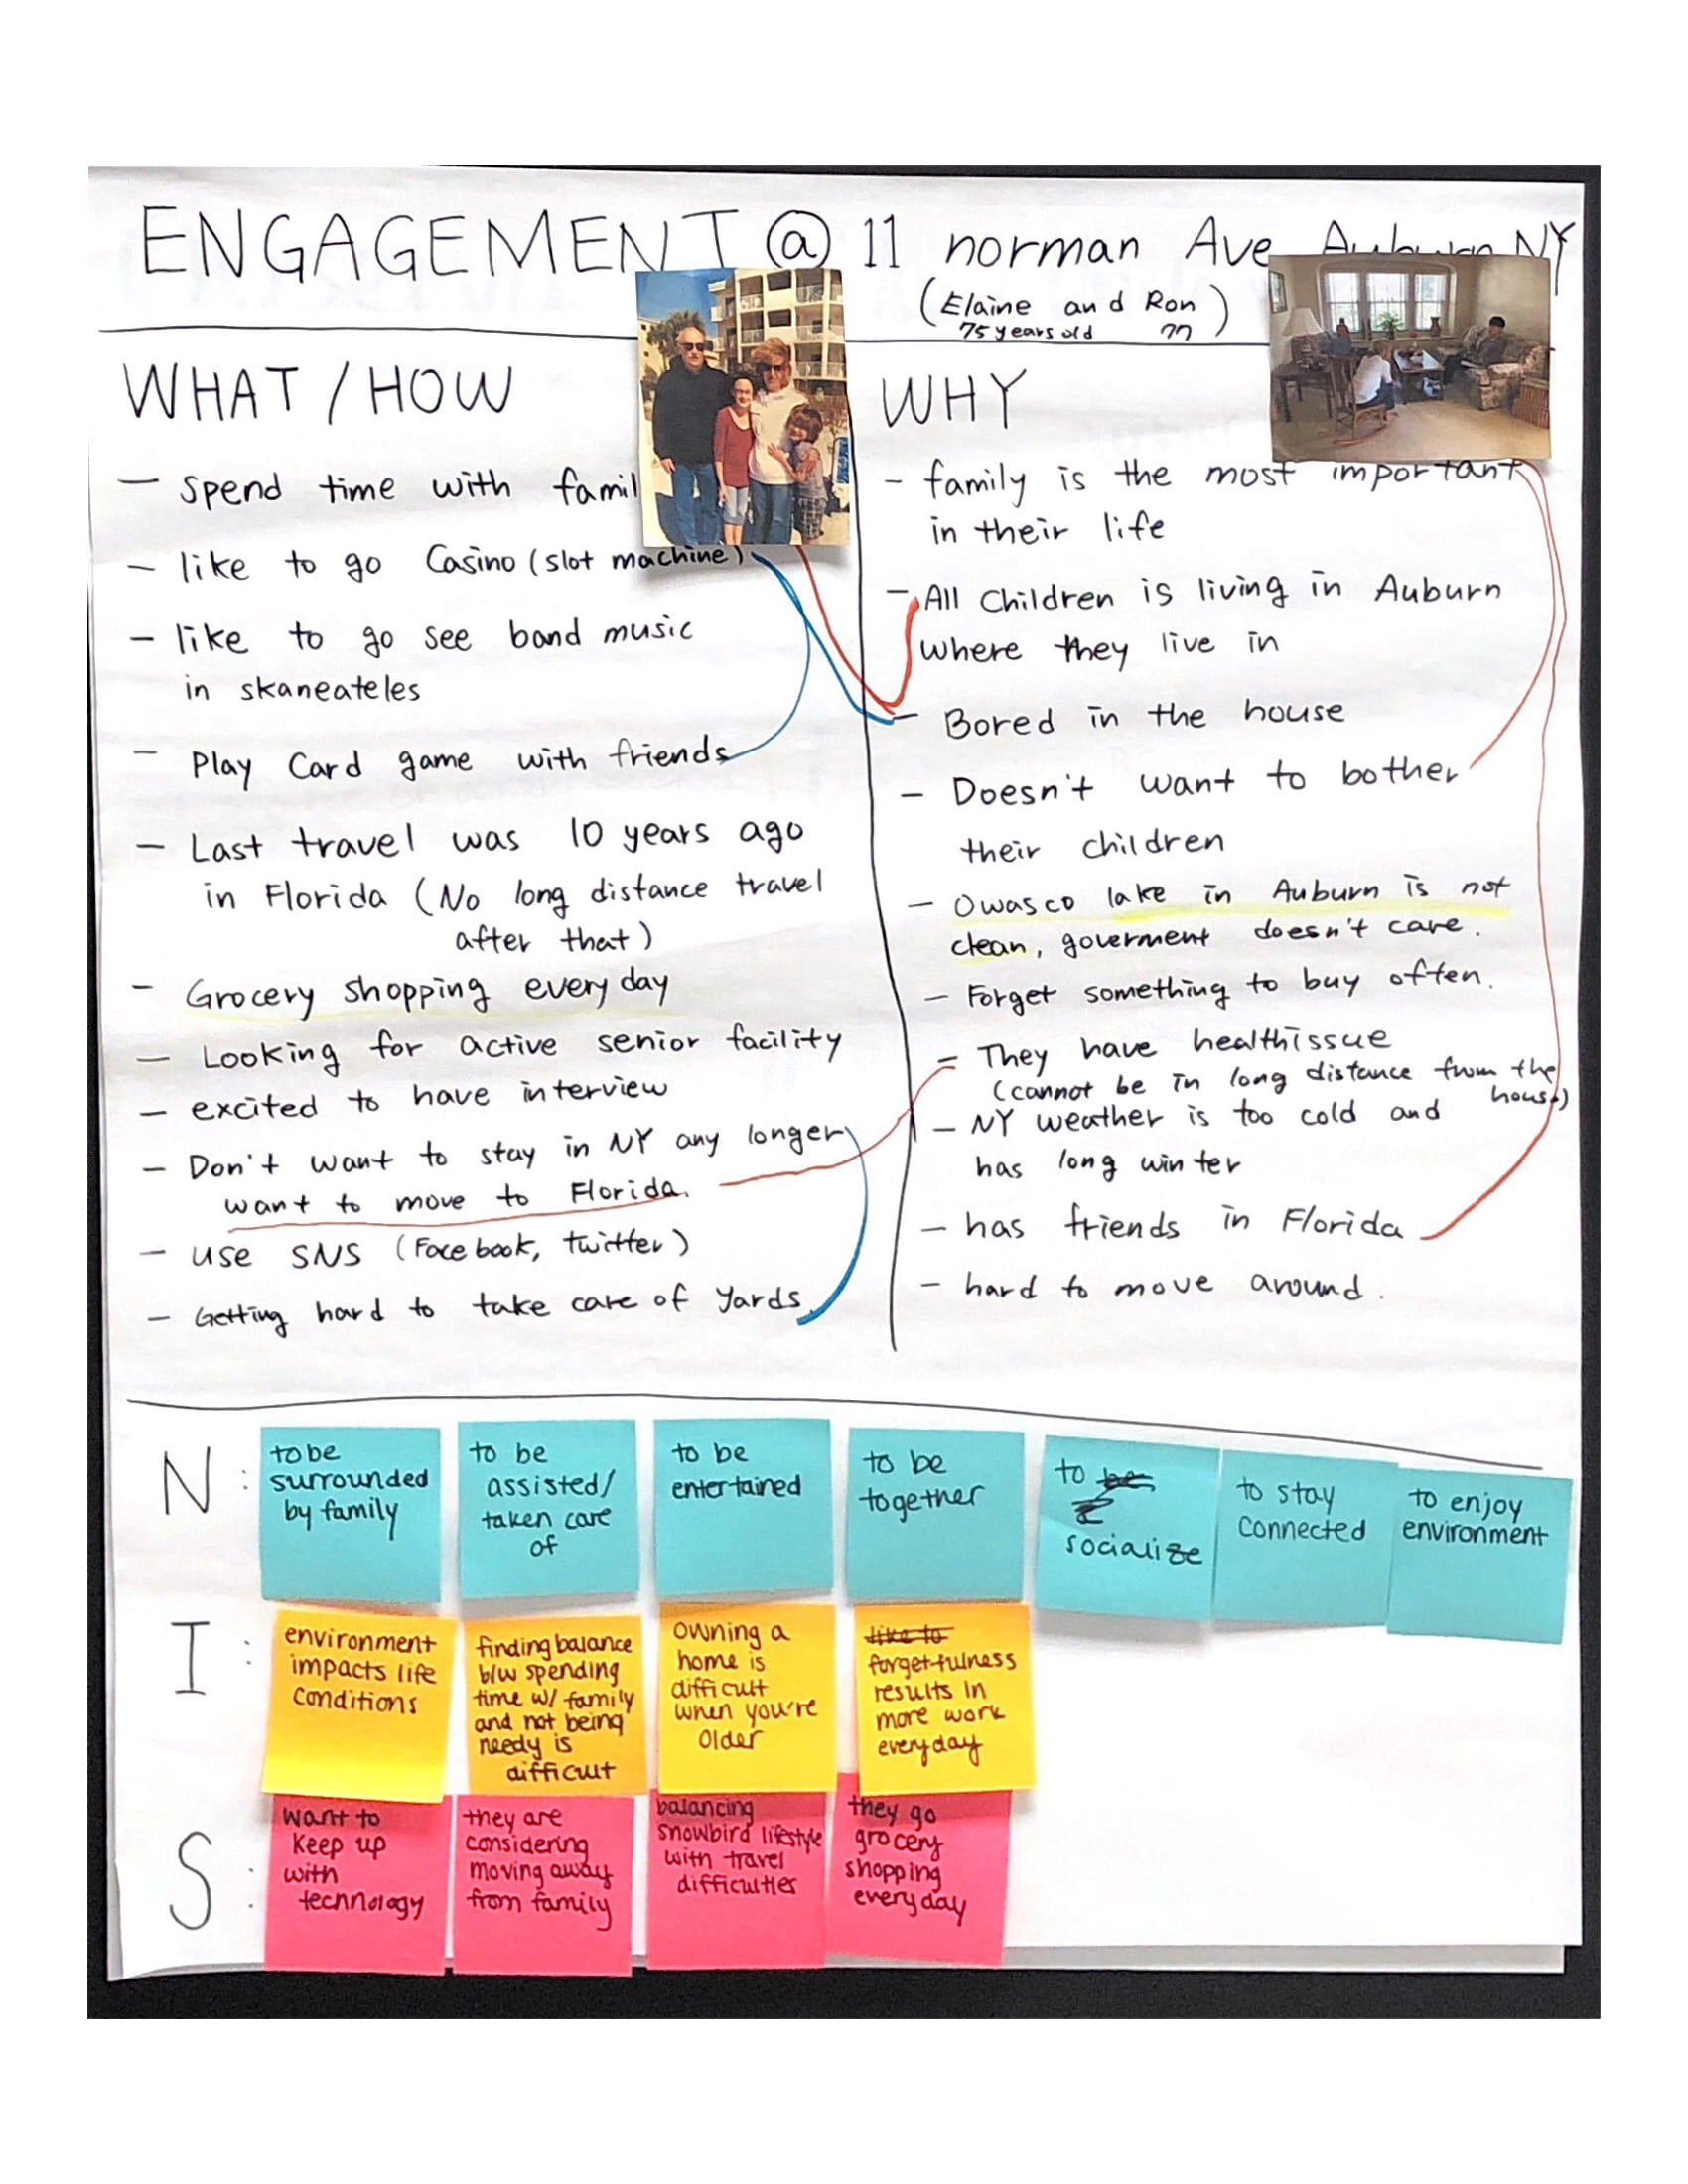 ENGAGEMENT @ 11 norman Ave Auburn NY
(Elaine and Ron)
75 years old 77
WHAT / HOW
- spend time with famil
- like to go Casino (slot machine)
- like to go see band music
in skaneateles
- Play Card game with friends
- Last travel was 10 years ago
in Florida (No long distance travel
after that)
- Grocery shopping every day
- Looking for active senior facility
- excited to have interview
- Don't want to stay in NY any longer
want to move to Florida.
- use SNS (Facebook, twitter)
- Getting hard to take care of yards
WHY
- family is the most important
in their life
- All Children is living in Auburn
where they live in
- Bored in the house
- Doesn't want to bother
their children
- Owasco lake in Auburn is not
clean, goverment doesn't care.
- Forget something to buy often.
- They have health issue
(cannot be in long distance from the
house)
- NY weather is too cold and
has long winter
- has friends in Florida
- hard to move around.
N:
to be
surrounded
by family
to be
assisted/
taken care
of
to be
entertained
to be
together
to be
socialize
to stay
connected
to enjoy
environment
I:
environment
impacts life
conditions
finding balance
b/w spending
time w/ family
and not being
needy is
difficult
owning a
home is
difficult
when you're
older
like to
forgetfulness
results in
more work
everyday
S:
want to
keep up
with
technology
they are
considering
moving away
from family
balancing
snowbird lifestyle
with travel
difficulties
they go
grocery
shopping
everyday